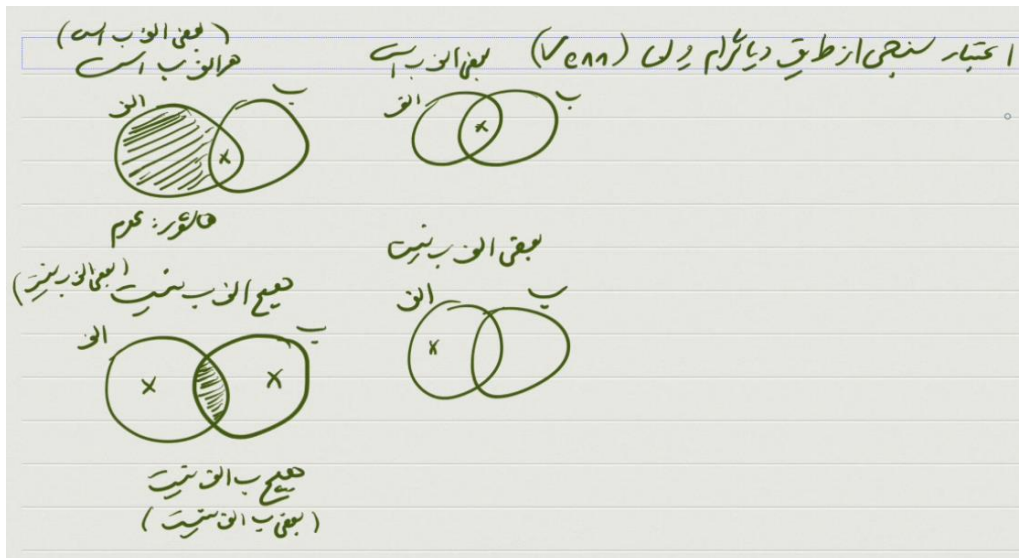 اعتبار سنجی از طریق دیاگرام ون (Venn)
بعضی الف ب است
الف
ب
(بعضی الف ب است)
هر الف ب است
الف
ب
هاشور: عدم
بعضی الف ب نیست
الف
ب
هیچ الف ب نیست (بعضی الف ب نیست)
الف
ب
هیچ ب الف نیست
(بعضی ب الف نیست)